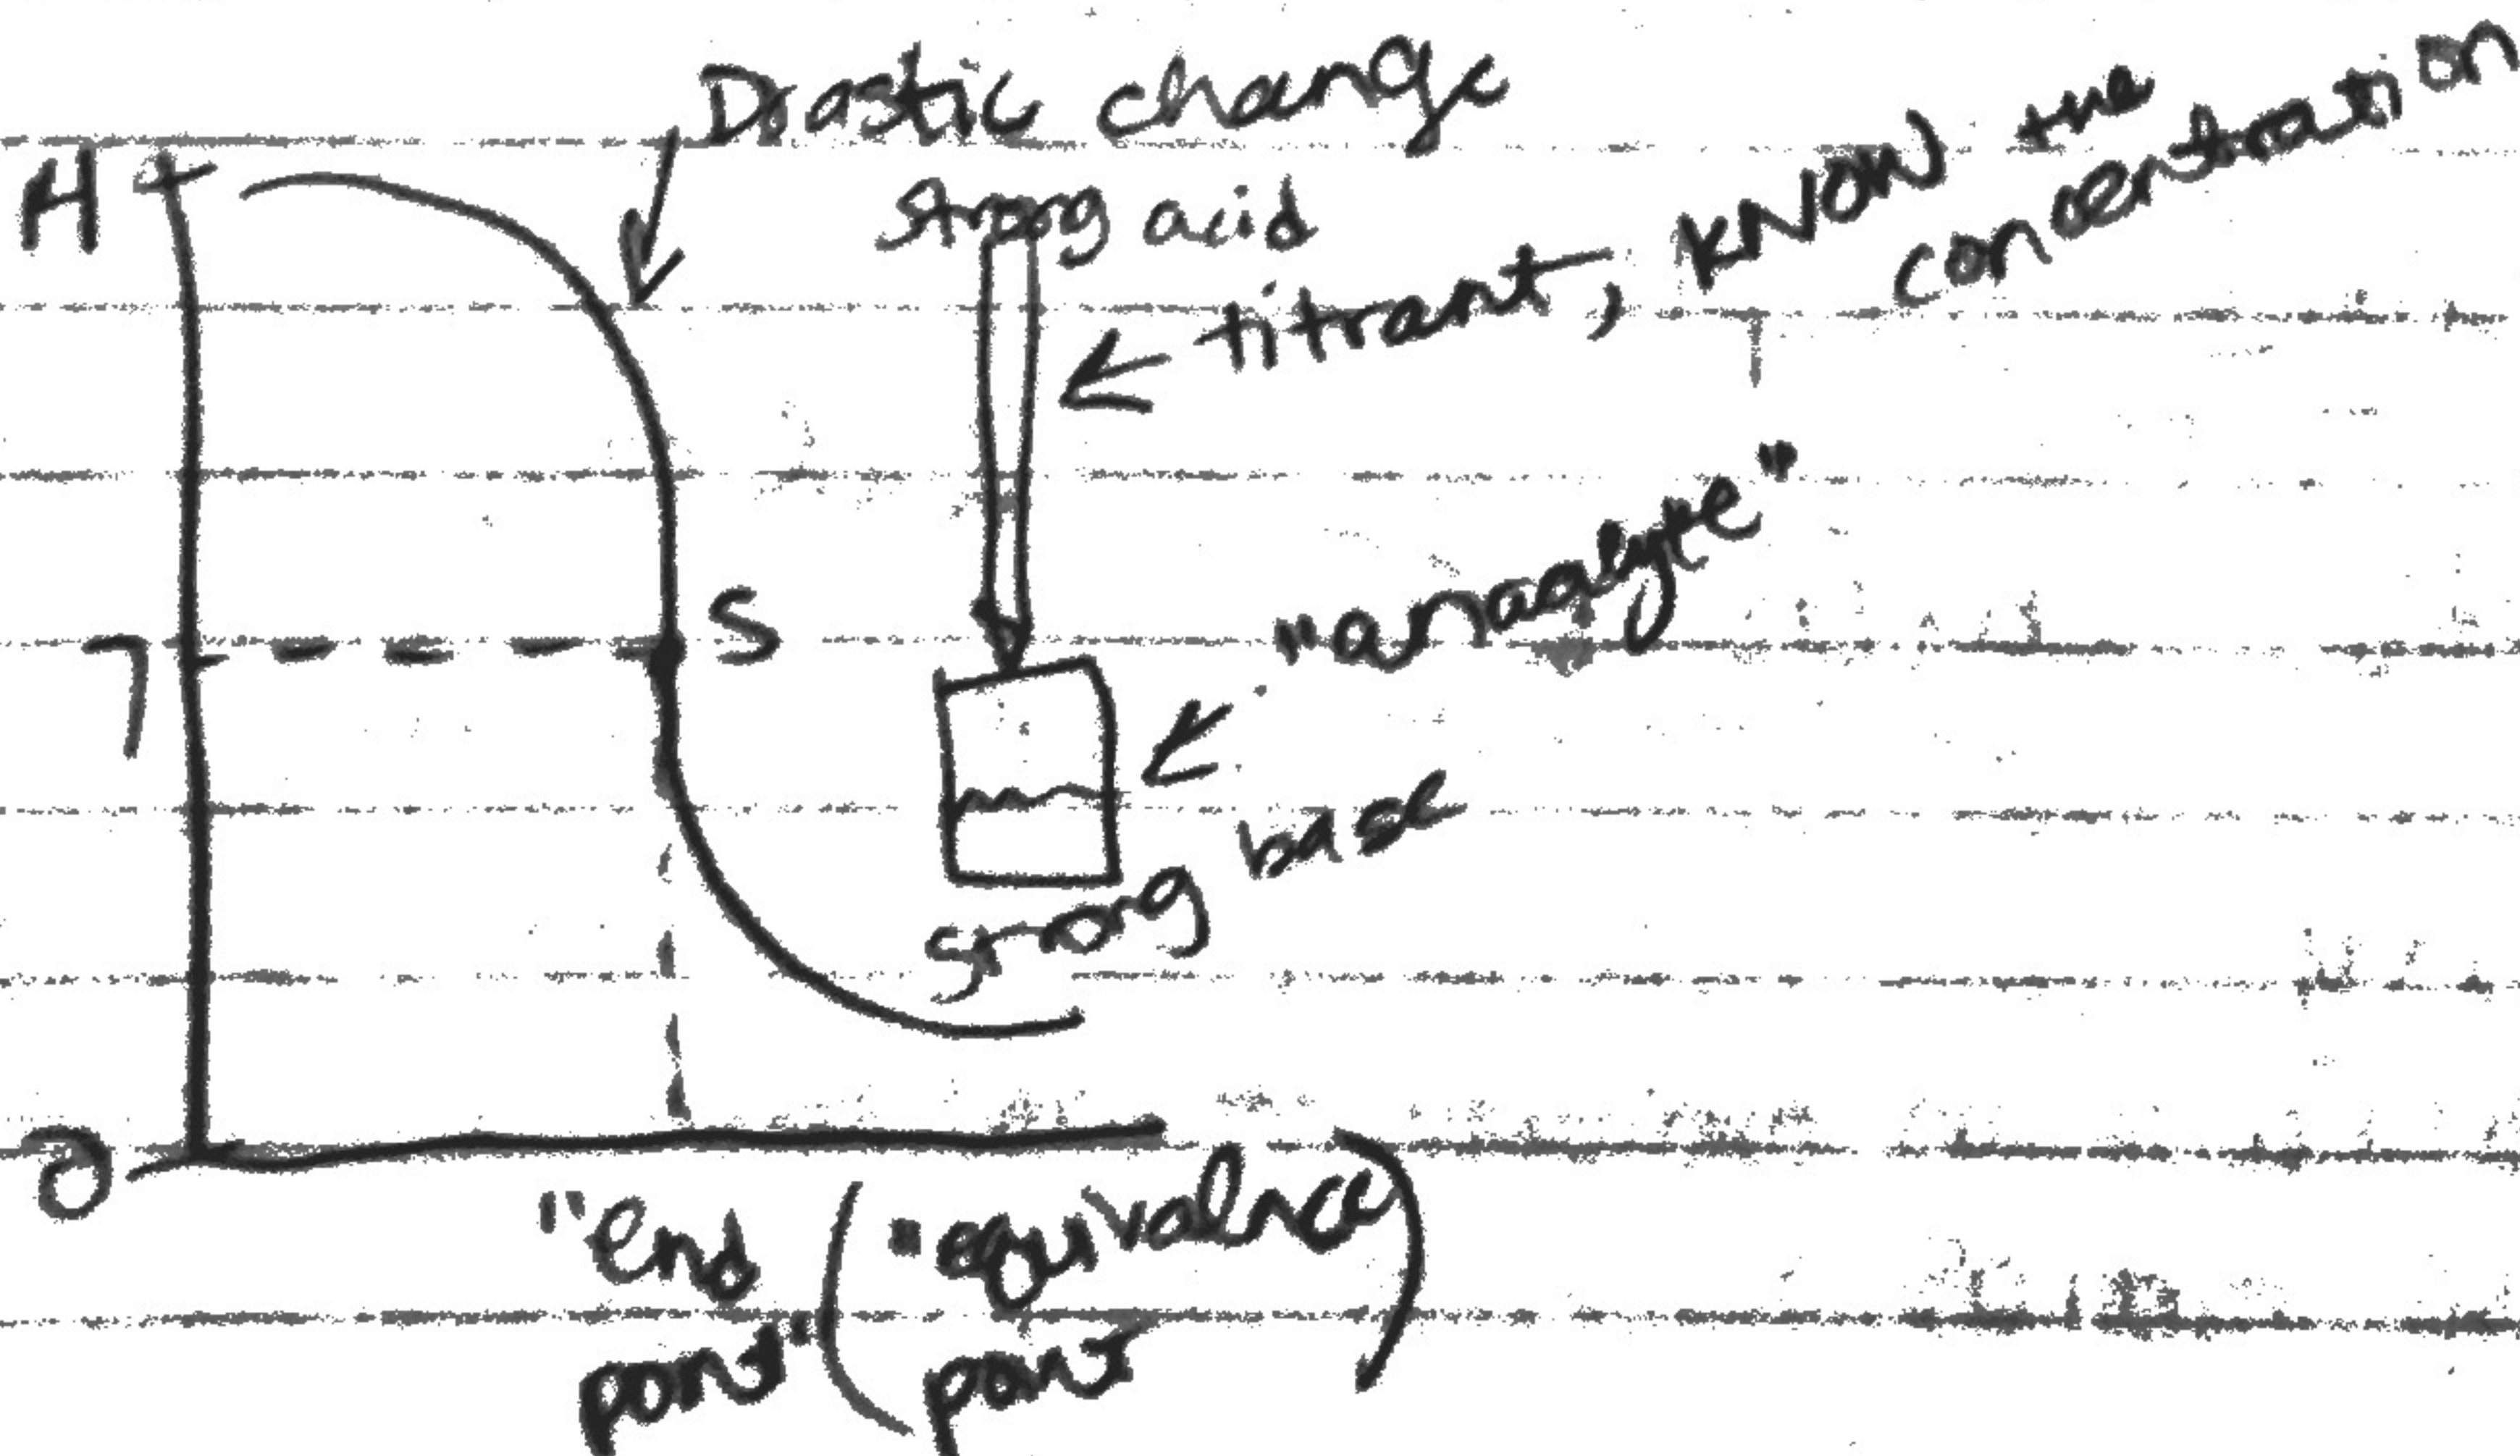 Drastic change
14
strong acid
titrant, know the
concentration
"analyte"
7
S
strong base
0
"end
point"
("equivalnce
point)